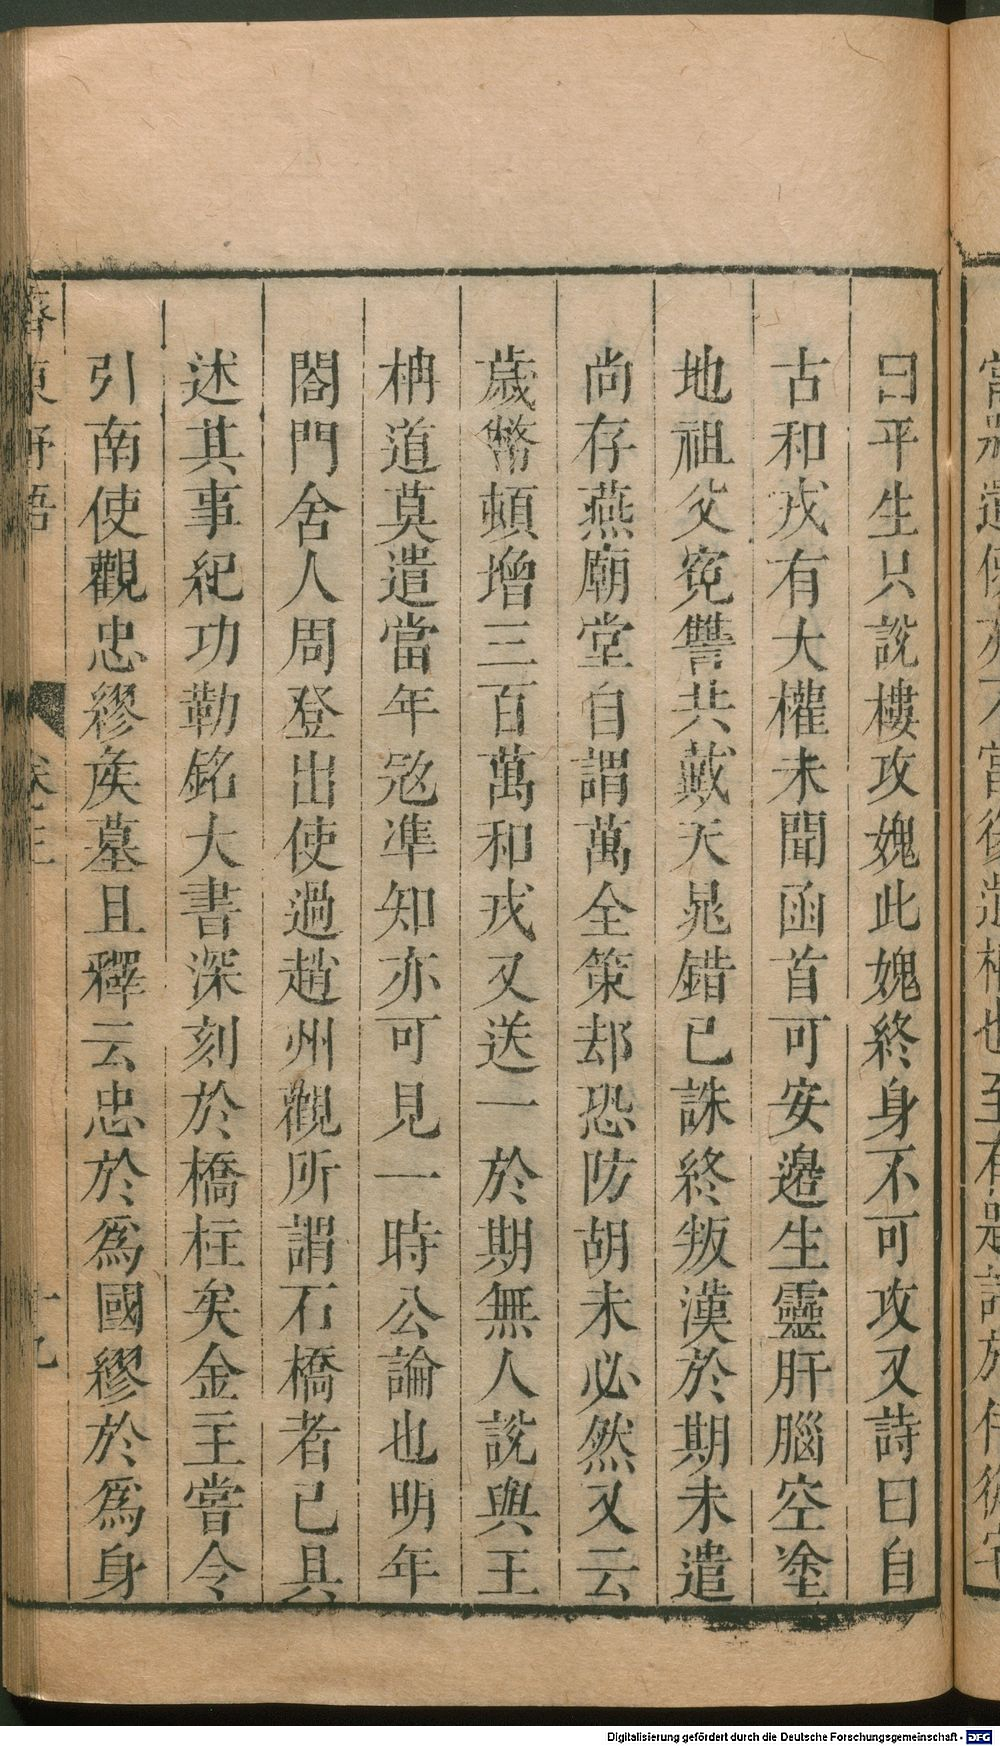 曰平生只說樓攻媿此媿終身不可攻又詩曰自
古和戎有大權未聞函首可安邊生靈肝腦空塗
地祖父寃讐共戴天晁錯已誅終叛漢於期未遣
尚存燕廟堂自謂萬全策却恐防胡未必然又云
歲幣頓增三百萬和戎又送一於期無人說與王
柟道莫遣當年寇準知亦可見一時公論也明年
閤門舍人周登出使過趙州觀所謂石橋者已具
述其事紀功勒銘大書深刻於橋柱矣金主嘗令
引南使觀忠繆矦墓且釋云忠於爲國繆於爲身
齊東野語 卷三 十九
Digitalisierung gefördert durch die Deutsche Forschungsgemeinschaft - DFG